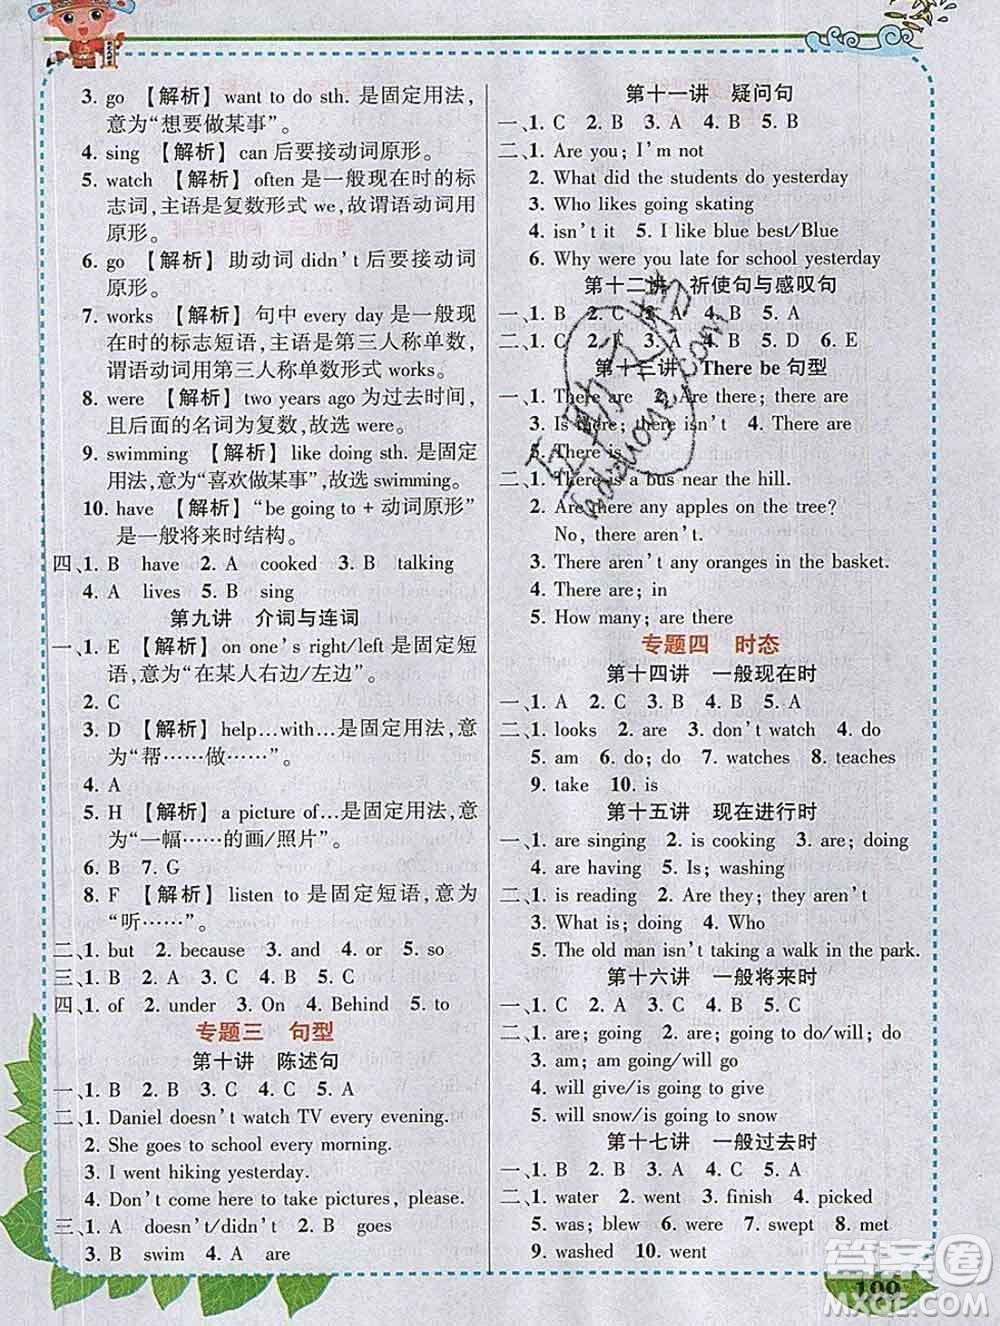 3. go 【解析】 want to do sth. 是固定用法,
意为“想要做某事”。
4. sing 【解析】 can 后要接动词原形。
5. watch 【解析】 often 是一般现在时的标
志词,主语是复数形式 we,故谓语动词用
原形。
6. go 【解析】 助动词 didn't 后要接动词
原形。
7. works 【解析】 句中 every day 是一般现
在时的标志短语,主语是第三人称单数,
谓语动词用第三人称单数形式 works。
8. were 【解析】 two years ago 为过去时间,
且后面的名词为复数,故选 were。
9. swimming 【解析】 like doing sth. 是固定
用法,意为“喜欢做某事”,故选 swimming。
10. have 【解析】 “be going to + 动词原形”
是一般将来时结构。
四、1. B have 2. A cooked 3. B talking
4. A lives 5. B sing
第九讲 介词与连词
一、1. E 【解析】 on one's right/left 是固定短
语,意为“在某人右边/左边”。
2. C
3. D 【解析】 help…with…是固定用法,意
为“帮……做……”。
4. A
5. H 【解析】 a picture of…是固定用法,意
为“一幅……的画/照片”。
6. B 7. G
8. F 【解析】 listen to 是固定短语,意为
“听……”。
二、1. but 2. because 3. and 4. or 5. so
三、1. B 2. A 3. C 4. C 5. B
四、1. of 2. under 3. On 4. Behind 5. to
专题三 句型
第十讲 陈述句
一、1. B 2. B 3. C 4. C 5. A
二、1. Daniel doesn't watch TV every evening.
2. She goes to school every morning.
3. I went hiking yesterday.
4. Don't come here to take pictures, please.
三、1. A doesn't/didn't 2. B goes
3. B swim 4. A are
第十一讲 疑问句
一、1. C 2. B 3. A 4. B 5. B
二、1. Are you; I'm not
2. What did the students do yesterday
3. Who likes going skating
4. isn't it 5. I like blue best/Blue
6. Why were you late for school yesterday
第十二讲 祈使句与感叹句
一、1. B 2. C 3. C 4. B 5. A
二、1. C 2. A 3. B 4. D 5. F 6. E
第十三讲 There be 句型
一、1. There are 2. There are
3. Is there; there isn't 4. There are
5. There is
二、1. There is a bus near the hill.
2. Are there any apples on the tree?
No, there aren't.
3. There aren't any oranges in the basket.
4. There are; in
5. How many; are there
专题四 时态
第十四讲 一般现在时
一、1. A 2. C 3. B 4. B 5. A
二、1. looks 2. tastes 3. don't watch 4. do
5. am 6. do; do 7. watch 8. teaches
9. take 10. is
第十五讲 现在进行时
一、1. are singing 2. is cooking 3. are; doing
4. are having 5. Is; washing
二、1. is reading 2. Are they; they aren't
3. What is; doing 4. Who
5. The old man isn't taking a walk in the park.
第十六讲 一般将来时
一、1. C 2. C 3. A 4. B 5. A
二、1. are; going 2. are; going to do/will; do
3. am; am going/will go
4. will give/is going to give
5. will snow/is going to snow
第十七讲 一般过去时
一、1. B 2. B 3. C 4. A 5. B
二、1. water 2. went 3. finish 4. picked
5. was; blew 6. were 7. swept 8. met
9. washed 10. went
109
答案圈
MXQE.COM